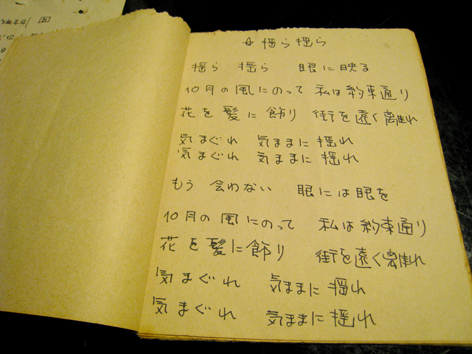 揺ら揺ら
揺ら 揺ら 眼に映る
10月の風にのって 私は約束通り
花を髪に飾り 街を遠く離れ
気まぐれ 気ままに揺れ
気まぐれ 気ままに揺れ
もう 会わない 眼には眼を
10月の風にのって 私は約束通り
花を髪に飾り 街を遠く離れ
気まぐれ 気ままに揺れ
気まぐれ 気ままに揺れ